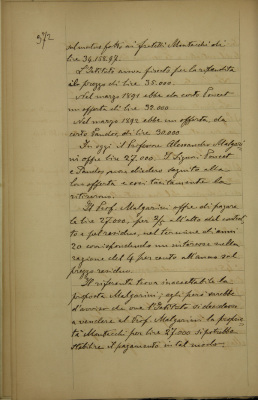 372
sul mutuo fatto ai fratelli Montecchi di
lire 34,158.97.
L'Istituto aveva fissato per la vendita
il prezzo di lire 35.000.
Nel marzo 1891 ebbe da certo
un'offerta di lire 32.000
Nel marzo 1892 ebbe un'offerta da
certo di lire 30.000
In oggi il Professore Alessandro Malgarini
offre lire 27.000. I Signori
e non diedero seguito alla
loro offerta e con tacitamente la
ritirarono.
Il Prof. Malgarini offre di pagare
le lire 27.000, per all'atto del contratto
e pel residuo, nel termine di anni
20 corrispondendo un interesse nella
ragione del 4 per cento all'anno sul
prezzo residuo.
Il riferente trova inaccettabile la
proposta Malgarini; egli però sarebbe
d'avviso che ove l'Istituto si decidesse
a vendere al Prof. Malgarini la proprietà
Montecchi per lire 27.000 si potrebbe
stabilire il pagamento in tal modo: